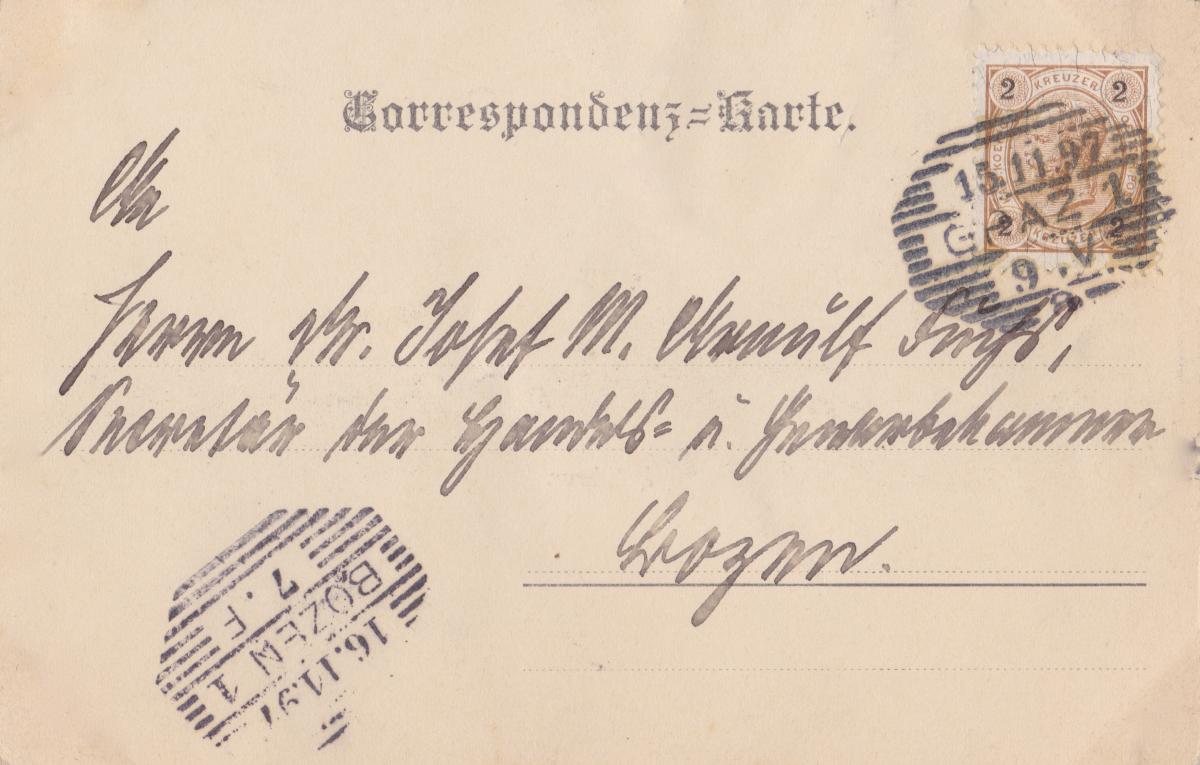 Correspondenz-Karte.
2 KREUZER 2
15.11.97
GRAZ 1
2 KREUZER 2
9.V
An
Herrn Dr. Josef M. Arnulf Fuchs,
Secretär der Handels- u. Gewerbekammer
Bozen.
7.F
BOZEN 1
16.11.97